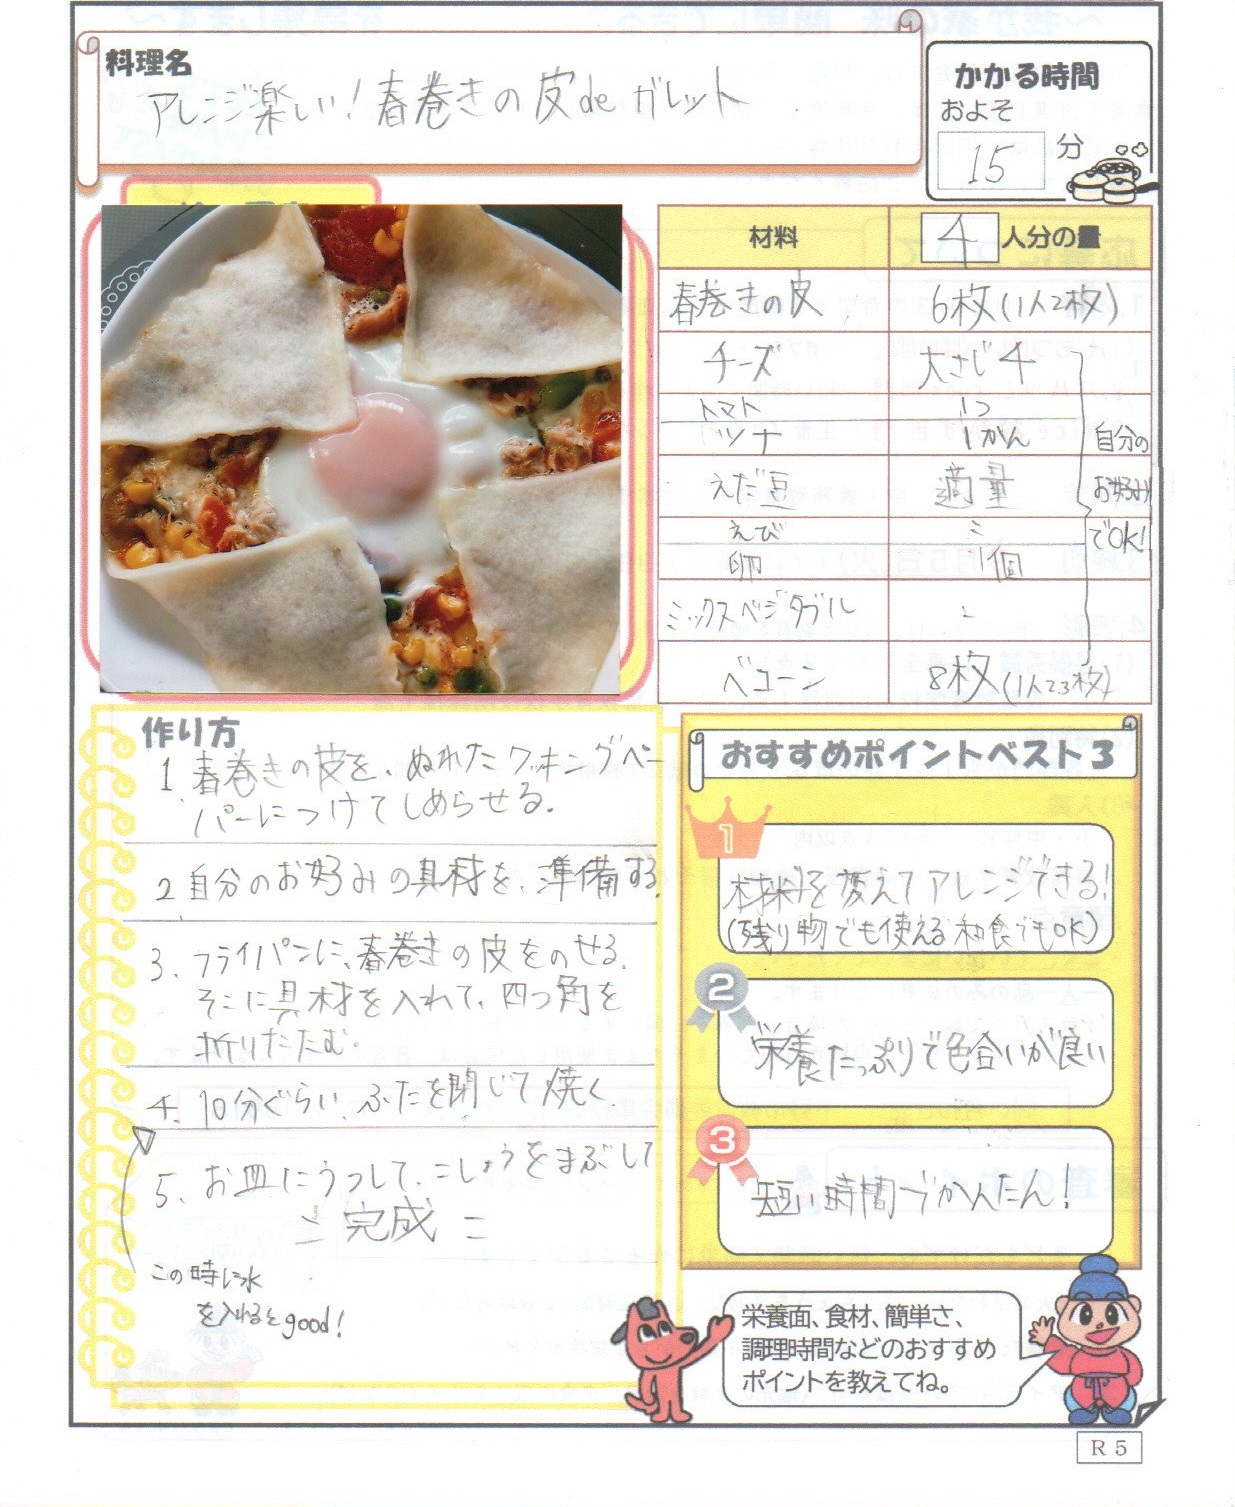 料理名
アレンジ楽しい！春巻きの皮deガレット
かかる時間
およそ
15 分
材料 4 人分の量
春巻きの皮 6枚(1人2枚)
チーズ 大さじ4
トマト 1つ
ツナ 1かん
えだ豆 適量
えび 〃
卵 1個
ミックスベジタブル 〃
ベーコン 8枚(1人2,3枚)
自分の
お好み
でOK!
作り方
1. 春巻きの皮を、ぬれたクッキングペー
パーにつけてしめらせる。
2 自分のお好みの具材を、準備する。
3. フライパンに、春巻きの皮をのせる。
そこに具材を入れて、四つ角を
折りたたむ。
4. 10分ぐらい、ふたを閉じて焼く。
5. お皿にうつして、こしょうをまぶして
完成
この時に水
を入れるとgood!
おすすめポイントベスト3
1
材料を変えてアレンジできる!
(残り物でも使える和食でもOK)
2
栄養たっぷりで色合いが良い
3
短い時間でかんたん!
栄養面、食材、簡単さ、
調理時間などのおすすめ
ポイントを教えてね。
R5